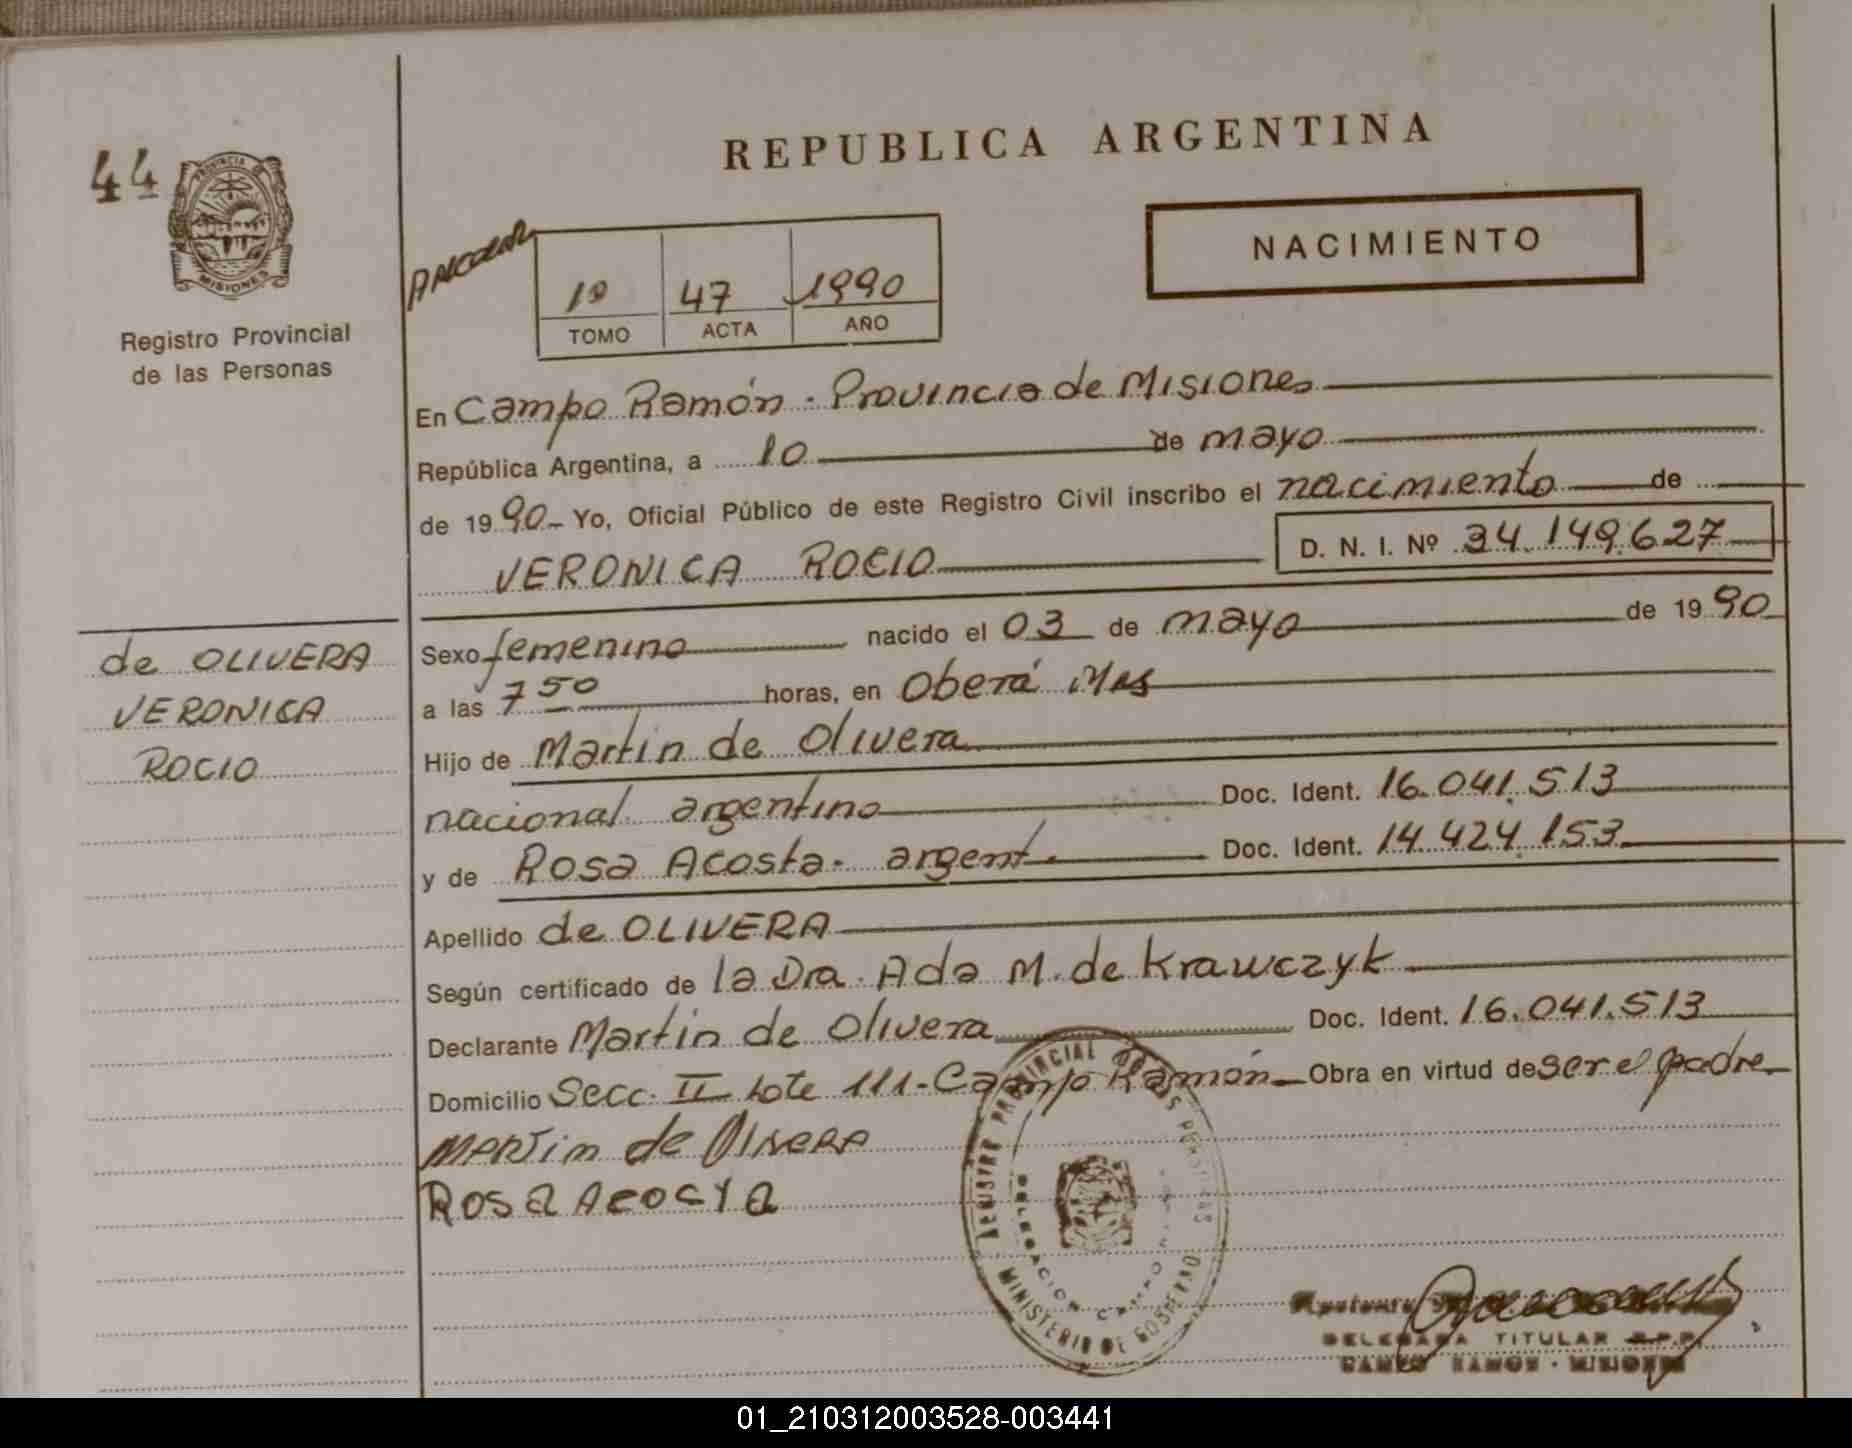 44
PROVINCIA DE
MISIONES
Registro Provincial
de las Personas
REPUBLICA ARGENTINA
NACIMIENTO
1º 47 1990
TOMO ACTA AÑO
En Campo Ramón - Provincia de Misiones
República Argentina, a 10 de mayo
de 1990 - Yo, Oficial Público de este Registro Civil inscribo el nacimiento de
VERONICA ROCIO D. N. I. Nº 34.149.627
de OLIVERA
VERONICA
ROCIO
Sexo femenino nacido el 03 de mayo de 1990
a las 7 50 horas, en Oberá Mns
Hijo de Martin de Olivera
nacional. argentino Doc. Ident. 16.041.513
y de Rosa Acosta - argent. Doc. Ident. 14.424.153
Apellido de OLIVERA
Según certificado de la Dra. Ada M. de Krawczyk
Declarante Martin de Olivera Doc. Ident. 16.041.513
Domicilio Secc. II Lote 111 - Campo Ramón - Obra en virtud de ser el padre -
MARTin de OlivERA
ROSA ACOSTA
REGISTRO PROVINCIAL DE LAS PERSONAS
DELEGACION CAMPO RAMON
MINISTERIO DE GOBIERNO
DELEGADA TITULAR R.P.P.
CAMPO RAMON - MISIONES
01_210312003528-003441